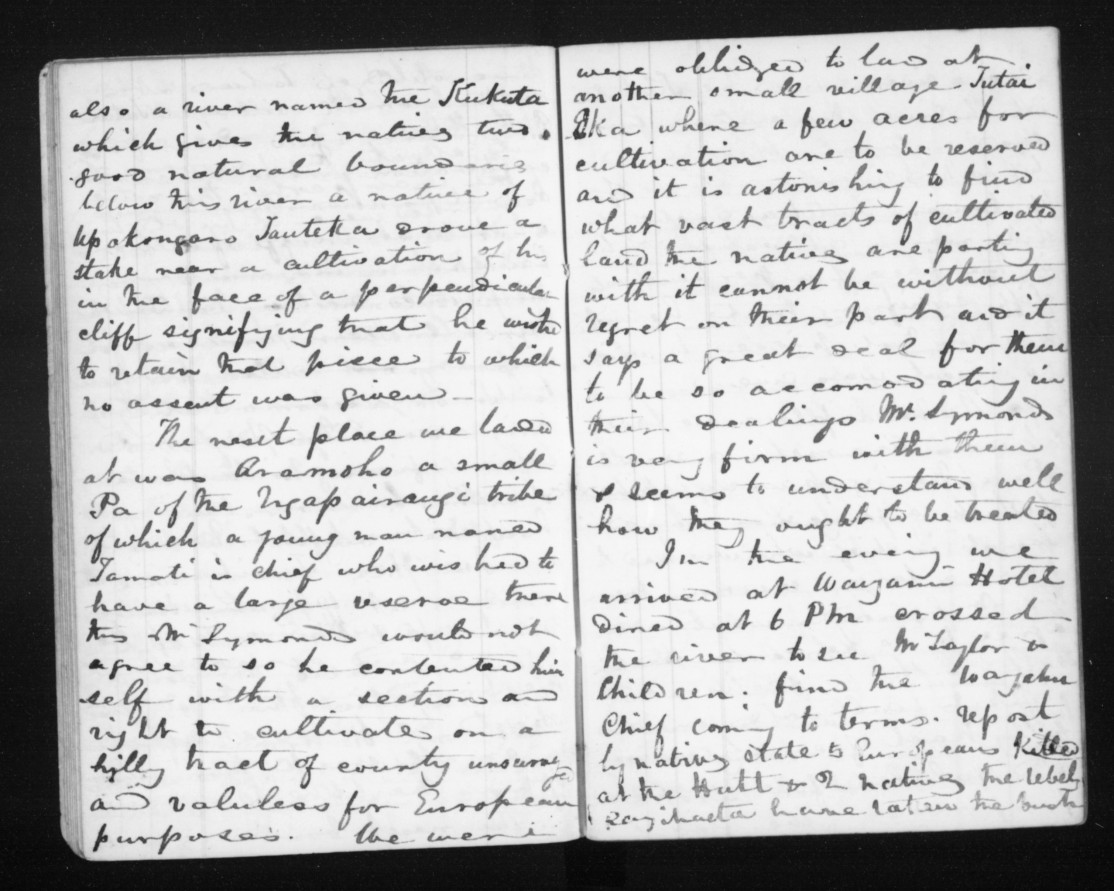 also a river named the Kukuta
which gives the natives two
good natural boundaries
below this river a native of
Upokongaro Tauteka drove a
stake near a cultivation of his
in the face of a perpendicular
cliff signifying that he wished
to retain that piece to which
no assent was given
The next place we landed
at was Aramoho a small
Pa of the Ngapairangi tribe
of which a young man named
Tamati is chief who wished to
have a large reserve there
this Mr Symonds would not
agree to so he contented him
self with a section and
right to cultivate on a
hilly tract of county
and valuless for European
purposes. We were
were oblidged to land at
another small village Tutai
Ka where a few acres for
cultivation are to be reserved
and it is astonishing to find
what vast tracts of cultivated
land the natives are parting
with it cannot be without
regret on their part and it
says a great deal for them
to be so accomodating in
their dealings Mr. Symonds
is very firm with them
& seems to understand well
how they ought to be treated
In the evening we
arrived at Wanganui Hotel
dined at 6 PM crossed
the river to see Mr Taylor &
Children. find the
Chief coming to terms. report
by natives state Europeans Killed
at the Hutt & 2 natives the rebel
have taken the bush